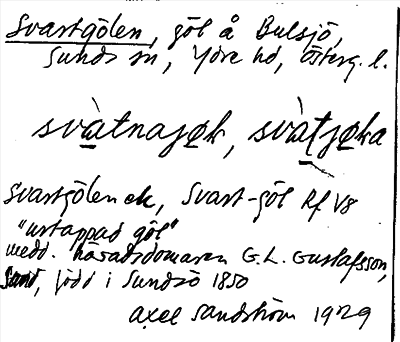 Svartgölen, göl å Bulsjö,
Sunds sn, Ydre hd, Österg. l.
svàtnajøk, svàtjøka
Svartgölen ek, Svart-göl Rf V8
"urtappad göl"
medd. häradsdomaren G. L. Gustafsson,
Sund, född i Sundsö 1850
Axel Sandström 1929